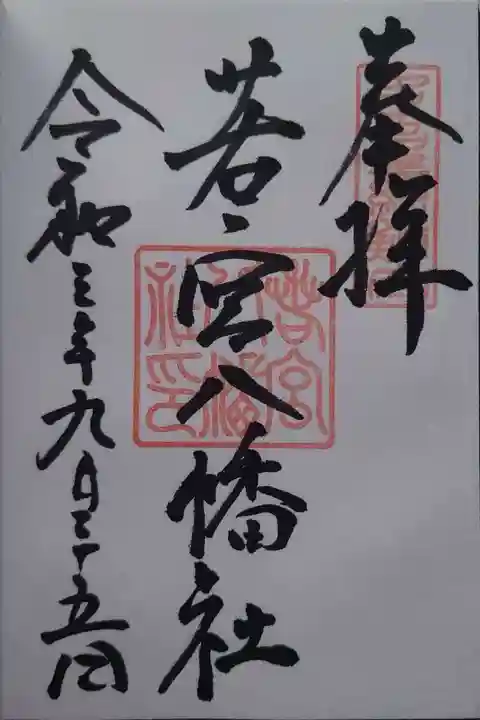 奉拝
若宮八幡社
令和三年九月二十五日
若宮八幡社印